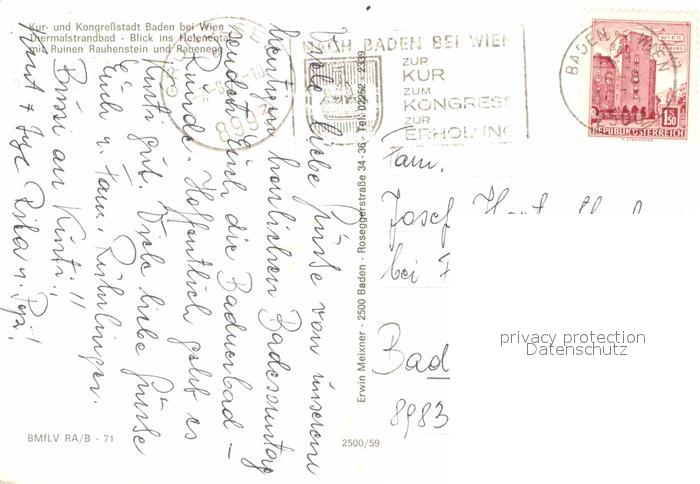 Kur- und Kongreßstadt Baden bei Wien
Thermalstrandbad - Blick ins Helenental
mit Ruinen Rauhenstein und Rauheneck
Viele liebe Grüße von unserem
heutigen herrlichen Badesonntag
sendet Euch die Badnerbad -
Runde. Hoffentlich geht es
Euch gut. Viele liebe Grüße
Euch u. Fam.
Bussi an Kinti!!
Rika u. Pepi!
BMfLV RA/B - 71
2500/59
Erwin Meixner · 2500 Baden · Roseggerstraße 34-36 · Tel. 02252 - 2339
NACH BADEN BEI WIEN
ZUR
KUR
ZUM
KONGRESS
ZUR
ERHOLUNG
BADEN WIEN
2500
WIEN
1.50
REPUBLIK ÖSTERREICH
Fam.
Josef
bei
Bad
8983
privacy protection
Datenschutz